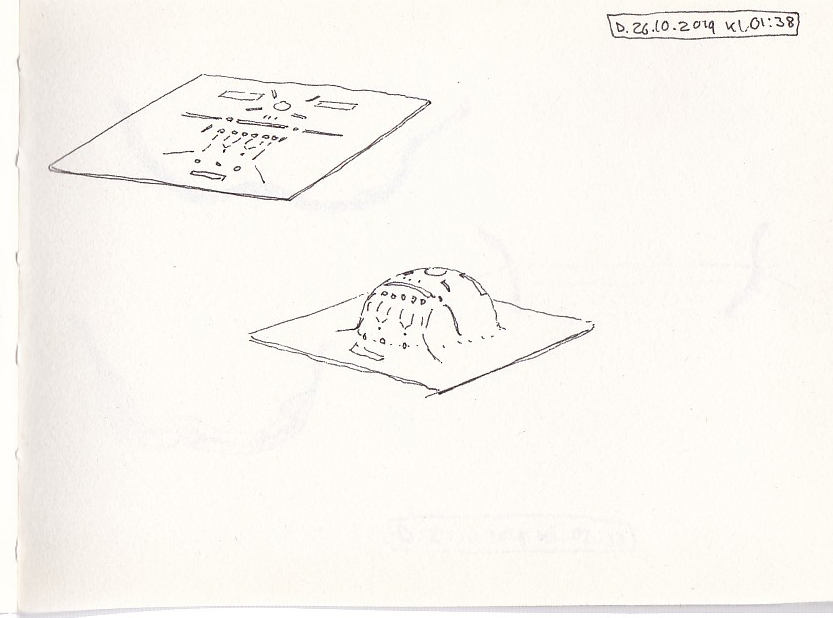 D. 26.10.2019 Kl. 01:38